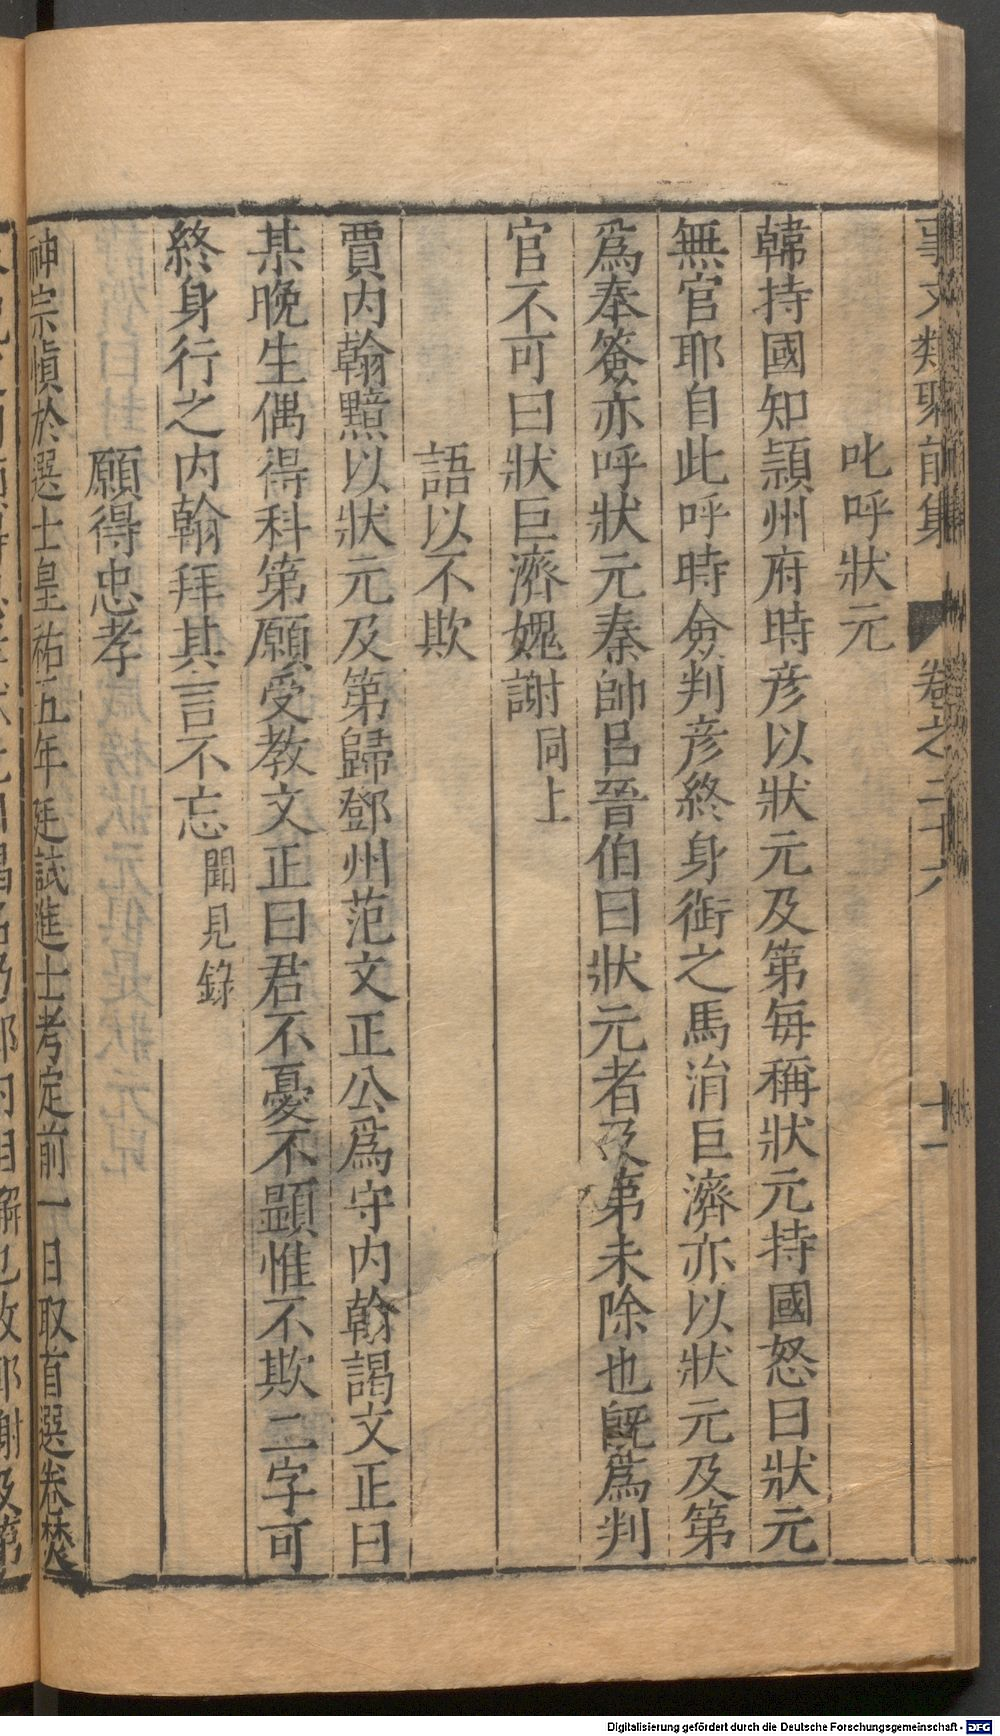 事文類聚前集 卷之二十六 十一
叱呼狀元
韓持國知潁州府時彦以狀元及第每稱狀元持國怒曰狀元
無官耶自此呼時僉判彦終身銜之馬涓巨濟亦以狀元及第
爲奉簽亦呼狀元秦帥呂晉伯曰狀元者及第未除也旣爲判
官不可曰狀巨濟媿謝同上
語以不欺
賈内翰黯以狀元及第歸鄧州范文正公爲守内翰謁文正曰
某晚生偶得科第願受教文正曰君不憂不顯惟不欺二字可
終身行之内翰拜其言不忘聞見錄
願得忠孝
神宗愼於選士皇祐五年廷試進士考定前一日取首選卷焚
Digitalisierung gefördert durch die Deutsche Forschungsgemeinschaft - DFG